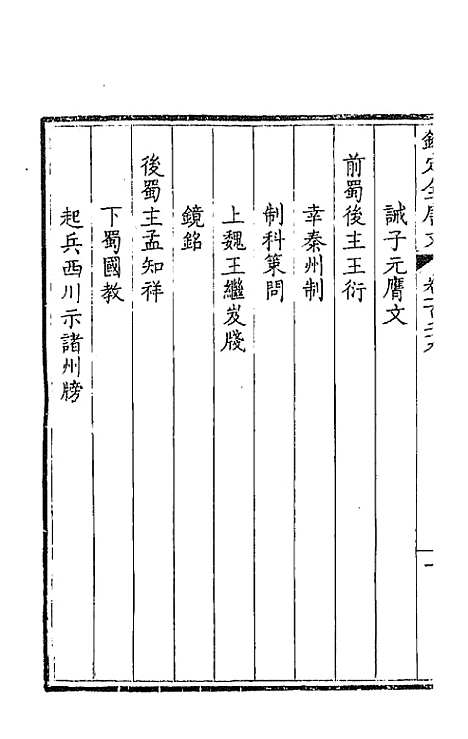 欽定全唐文 卷一百二十九 一
誡子元膺文
前蜀後主王衍
幸秦州制
制科策問
上魏王繼岌牋
鏡銘
後蜀主孟知祥
下蜀國教
起兵西川示諸州牓